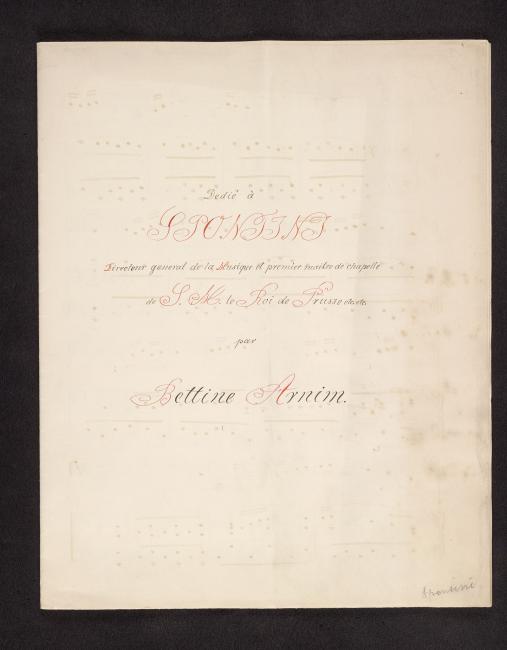 Dedié à
SPONTINI
Directeur general de la Musique et premier maitre de chapelle
de S. M. le Roi de Prusse etc. etc.
par
Bettine Arnim.
Spontini